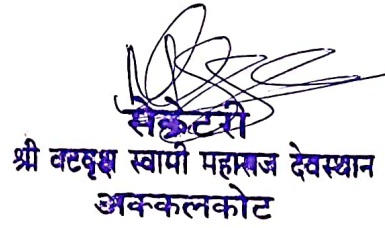 सेक्रेटरी
श्री वटवृक्ष स्वामी महाराज देवस्थान
अक्कलकोट